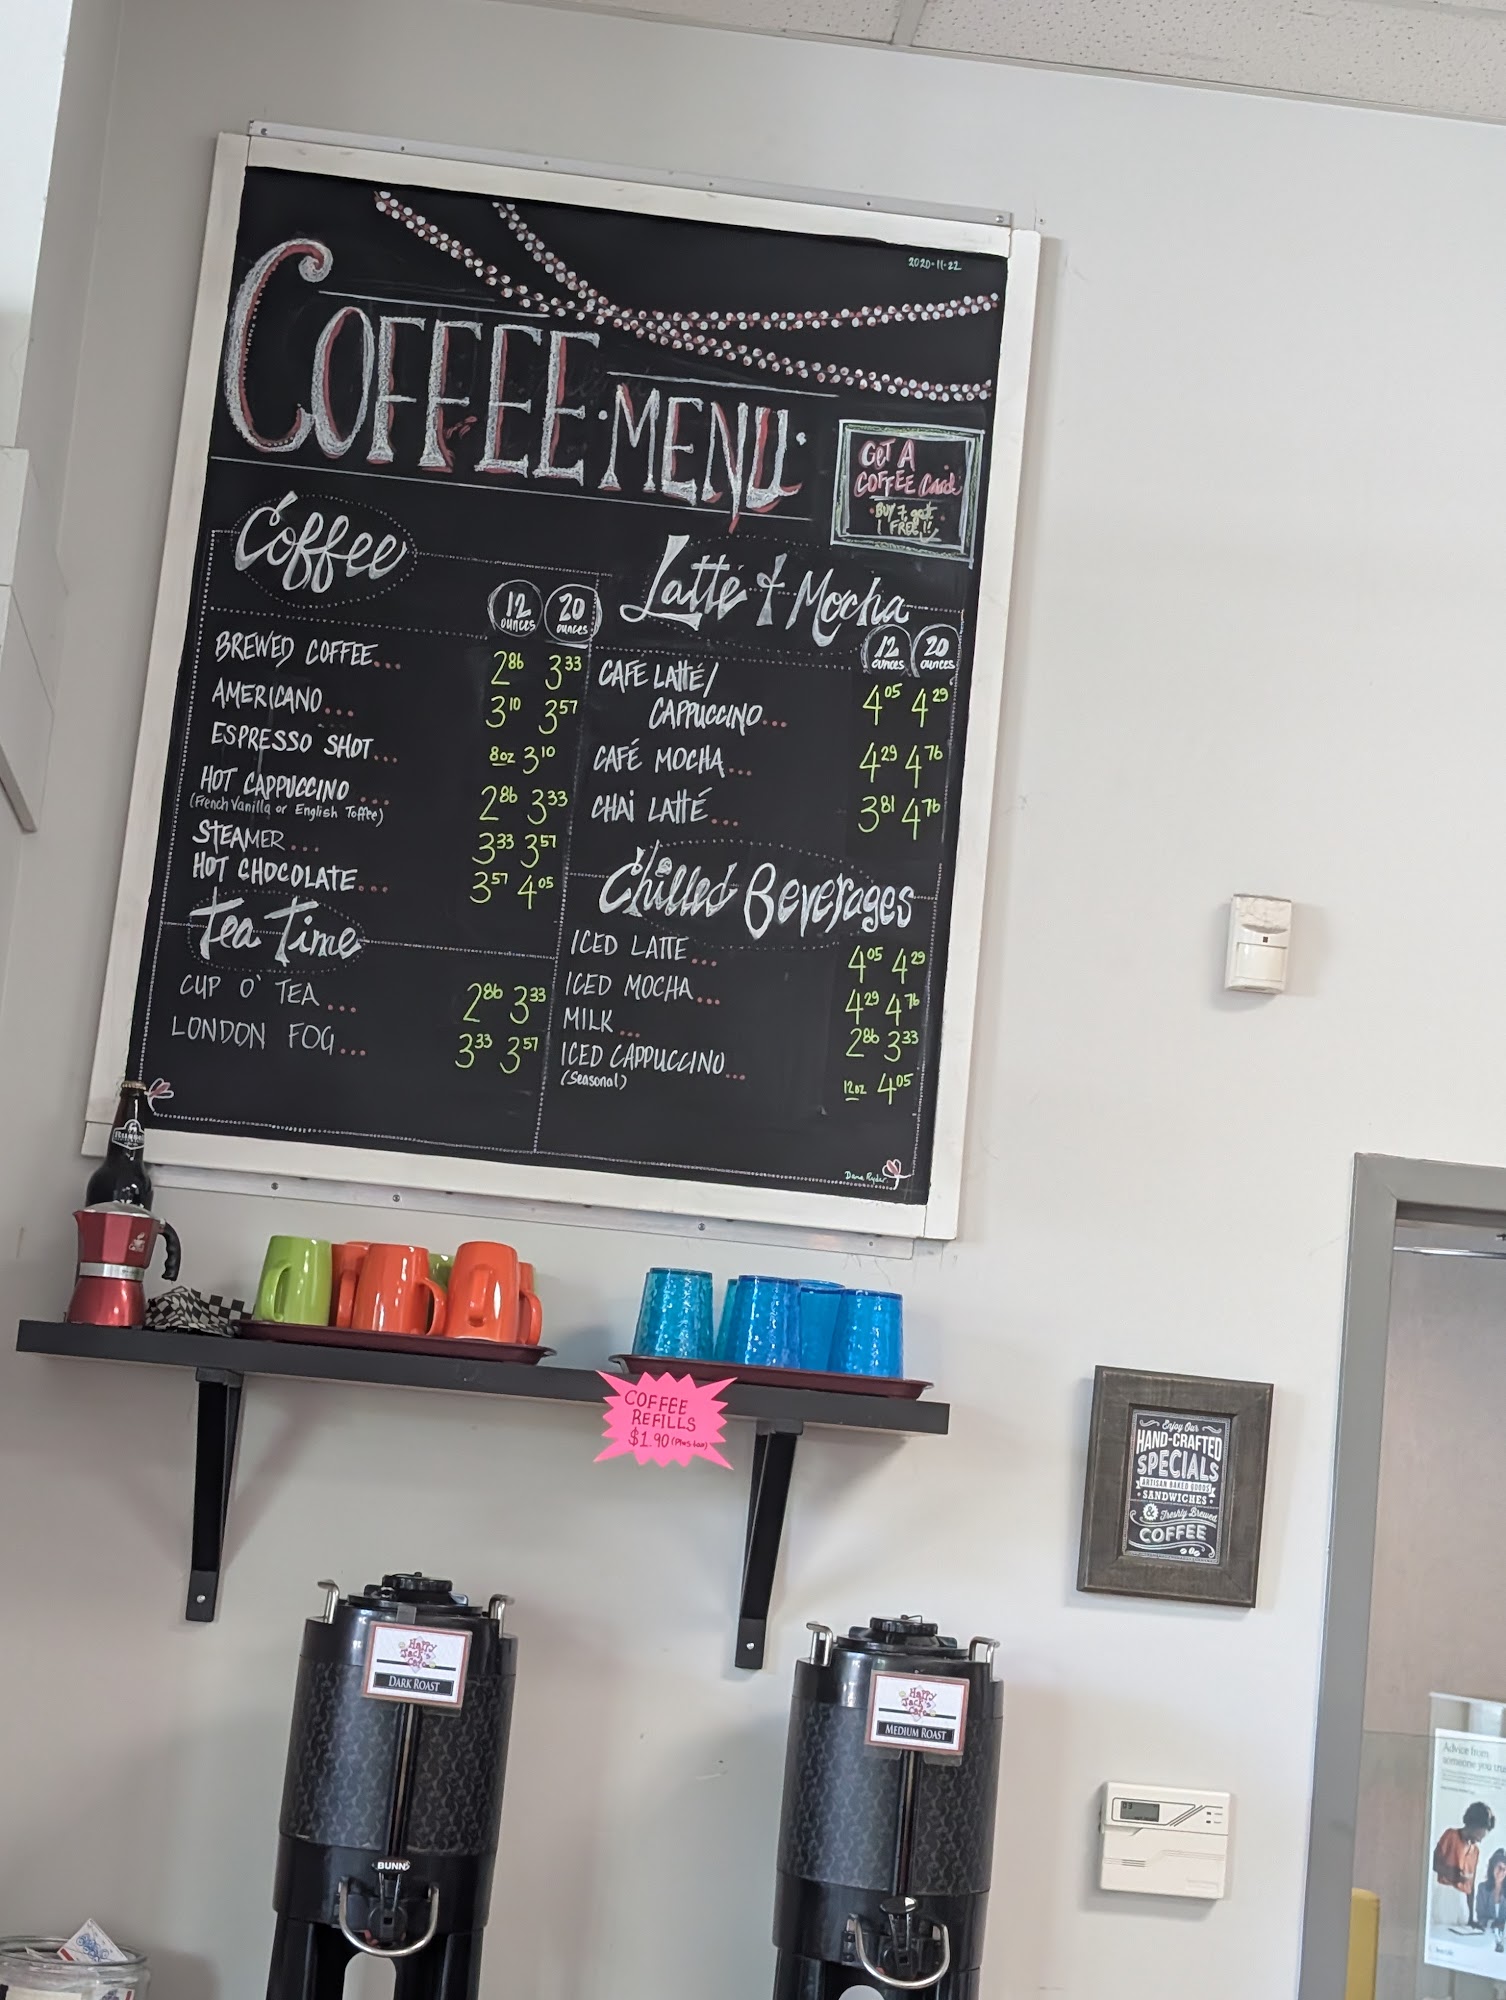 2020-11-22
COFFEE·MENU·
GET A
COFFEE Card
BUY 7, get
1 FREE!!
Coffee
12 ounces 20 ounces
BREWED COFFEE... 2.86 3.33
AMERICANO... 3.10 3.57
ESPRESSO SHOT... 8oz 3.10
HOT CAPPUCCINO... 2.86 3.33
(French Vanilla or English Toffee)
STEAMER... 3.33 3.57
HOT CHOCOLATE... 3.57 4.05
Tea Time
CUP O' TEA... 2.86 3.33
LONDON FOG... 3.33 3.57
Latté & Mocha
12 ounces 20 ounces
CAFÉ LATTÉ/
CAPPUCCINO... 4.05 4.29
CAFÉ MOCHA... 4.29 4.76
CHAI LATTÉ... 3.81 4.76
Chilled Beverages
ICED LATTE... 4.05 4.29
ICED MOCHA... 4.29 4.76
MILK... 2.86 3.33
ICED CAPPUCCINO... 12oz 4.05
(Seasonal)
Dana Ryder
COFFEE
REFILLS
$1.90 (Plus tax)
Enjoy Our
HAND-CRAFTED
SPECIALS
ARTISAN BAKED GOODS
SANDWICHES
& Freshly Brewed
COFFEE
Happy
Jack's
Cafe
DARK ROAST
BUNN
Happy
Jack's
Cafe
MEDIUM ROAST
Advice from
someone you